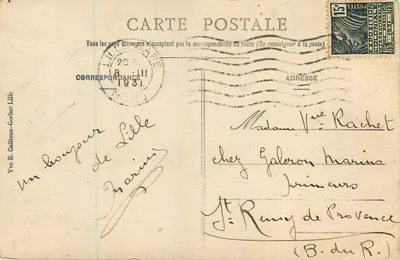 CARTE POSTALE
Tous les pays étrangers n'acceptent pas la correspondance au recto (Se renseigner à la poste)
CORRESPONDANCE
ADRESSE
LILLE GARE
1931
NORD
15c
Vve E. Cailteux-Gorlier Lille
un bonjour
de Lille
Marini
Madame Vve Rachet
chez Galeron Marina
primeurs
St Remy de Provence
(B. du R.)